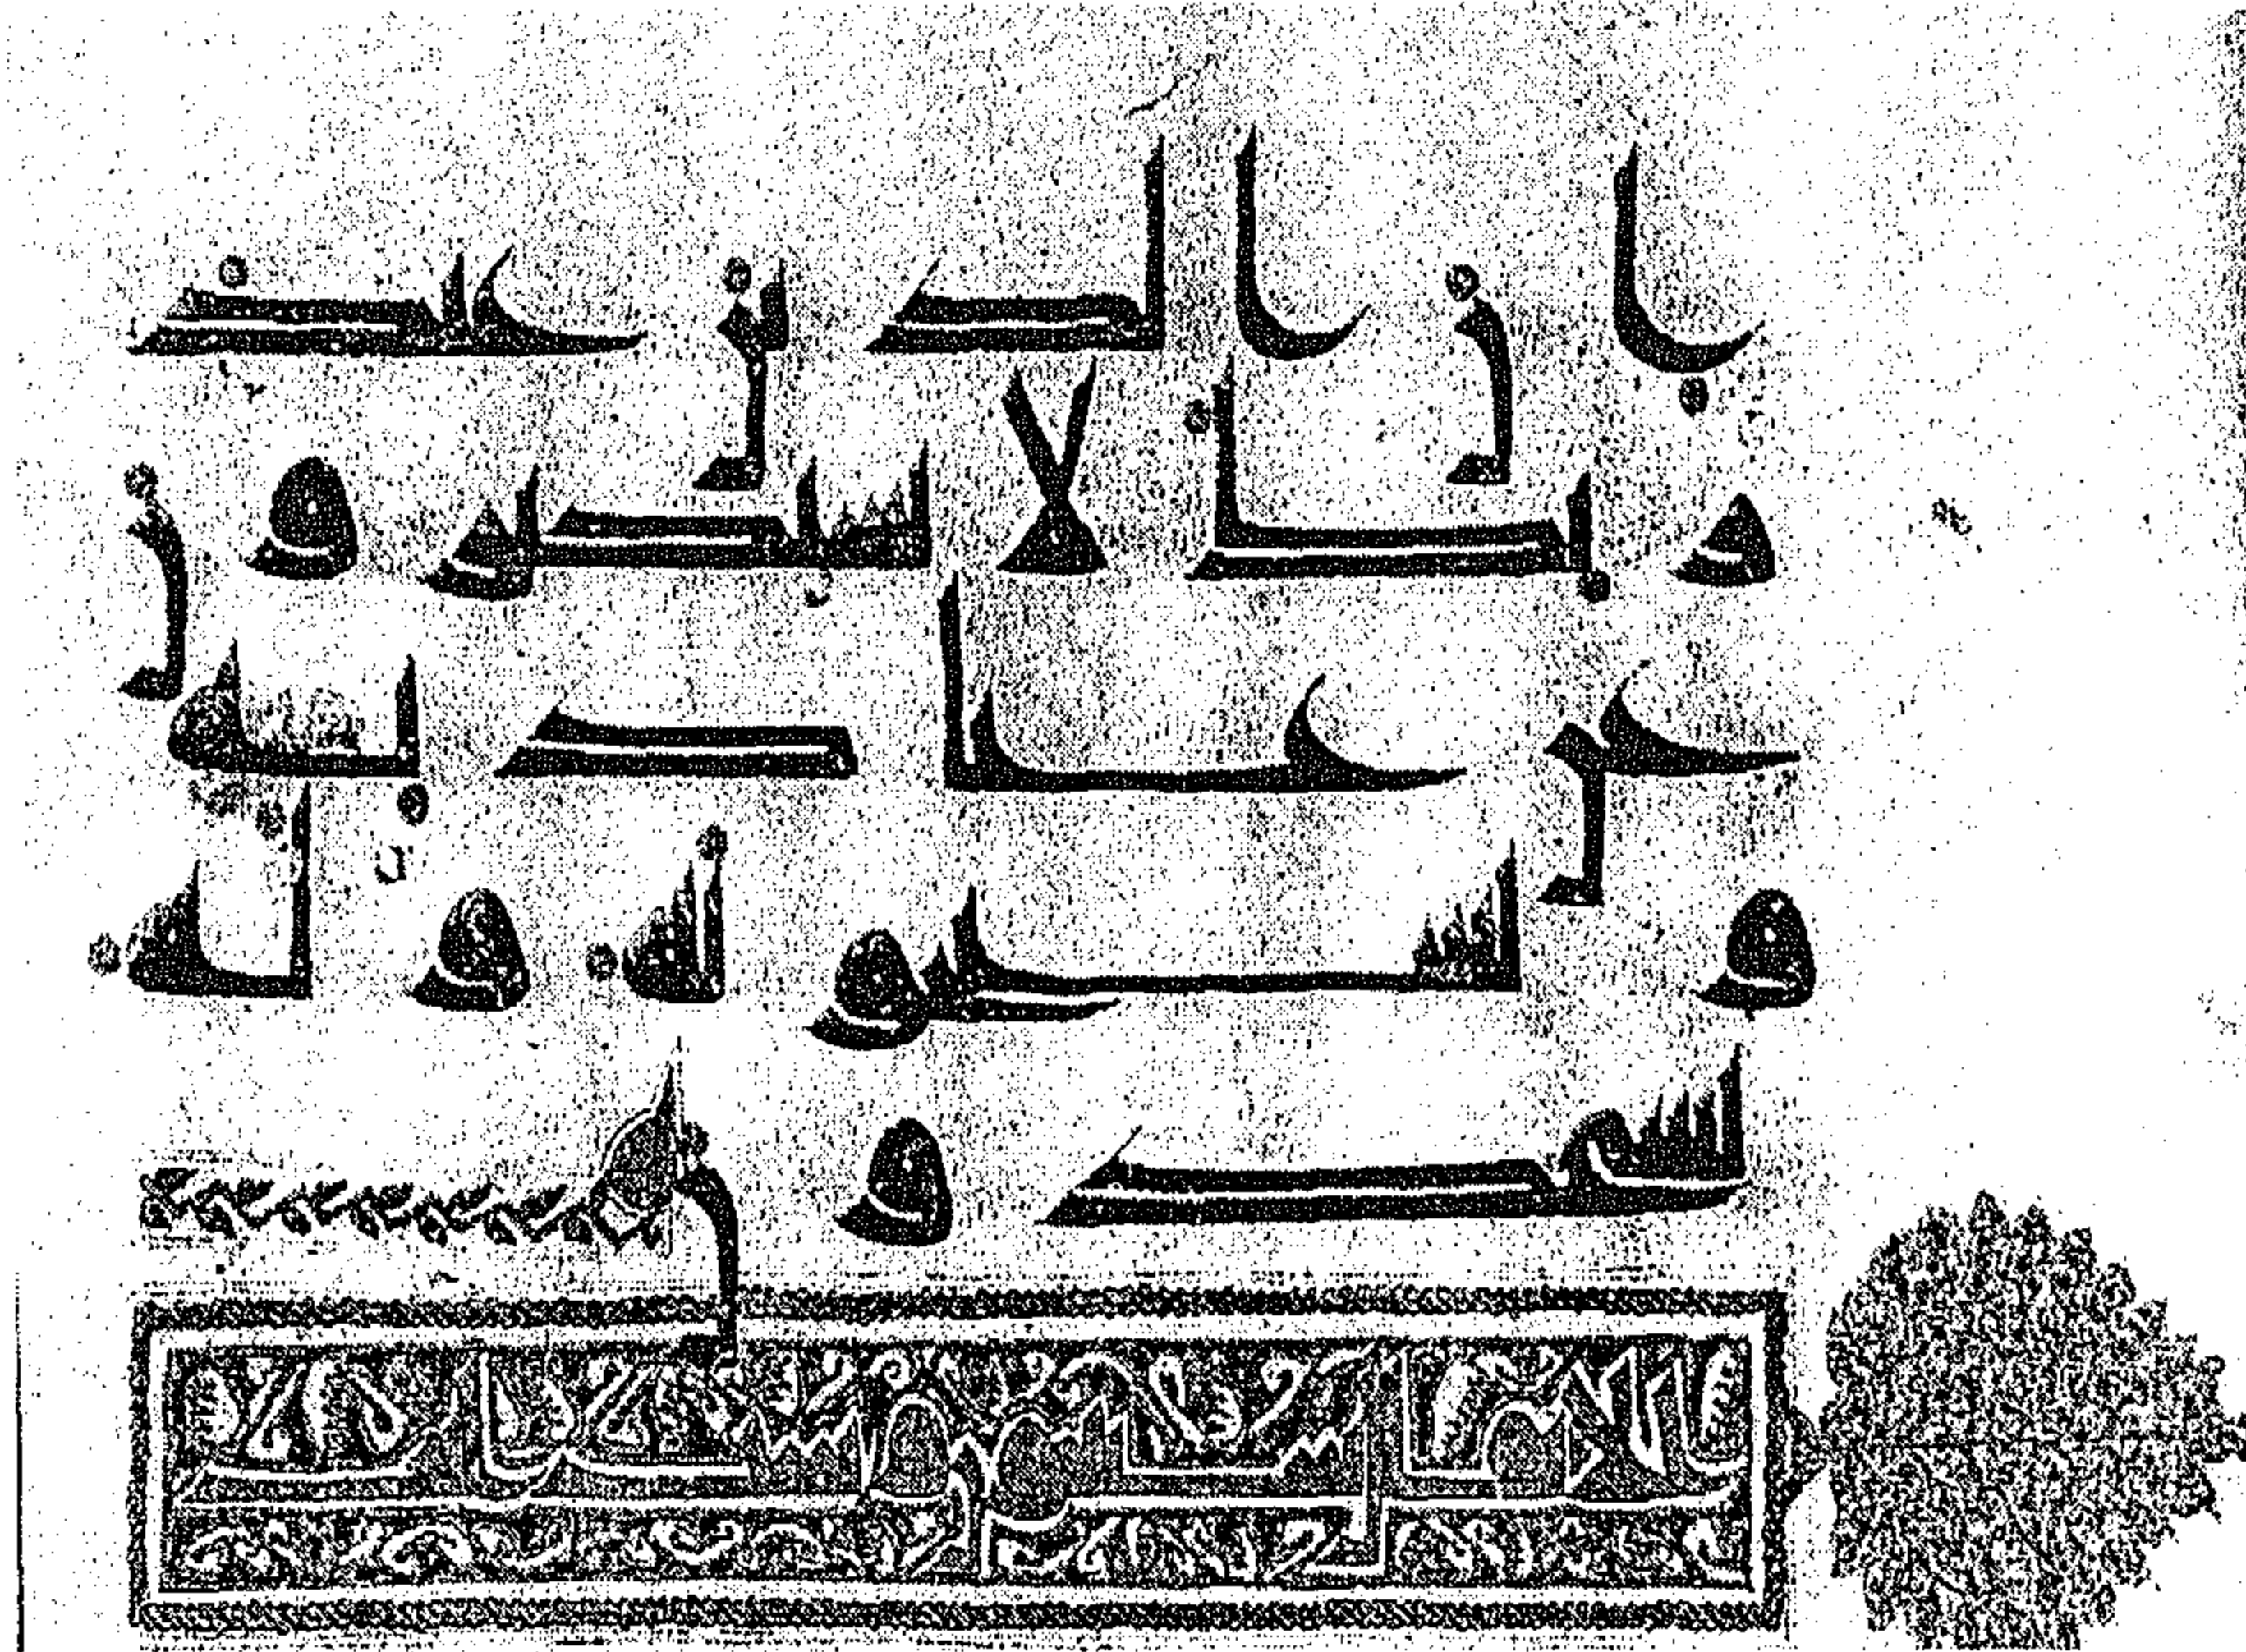 ان الذين عند
ربك لا يستكبرون
عن عبادته
ويسبحونه وله
يسجدون
الانفال